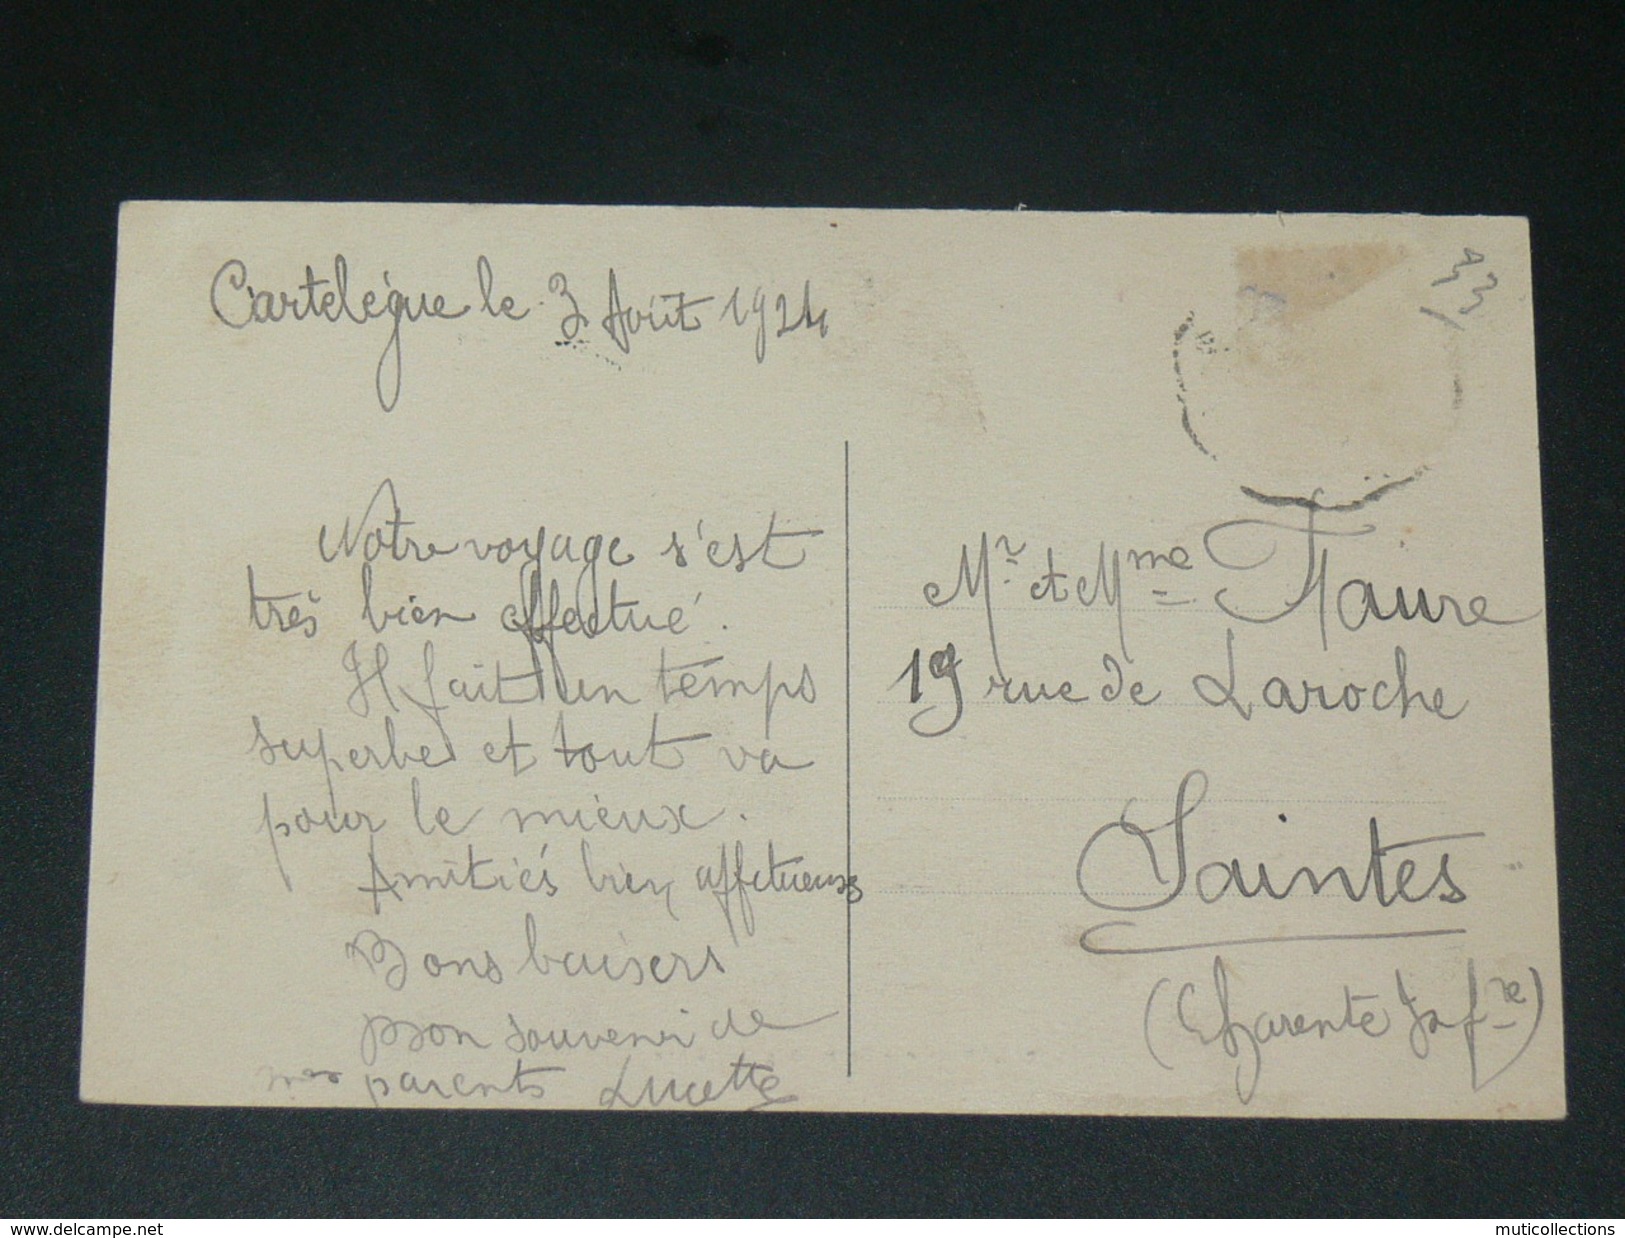 Cartelègue le 3 Août 1924
33
Notre voyage s'est
très bien effectué.
Il fait un temps
superbe et tout va
pour le mieux.
Amitiés bien affctueuses
Bons baisers
Bon souvenir de
mes parents Lucette
Mr et Mme Faure
19 rue de Laroche
Saintes
(Charente Infre)
https://www.delcampe.net
muticollections